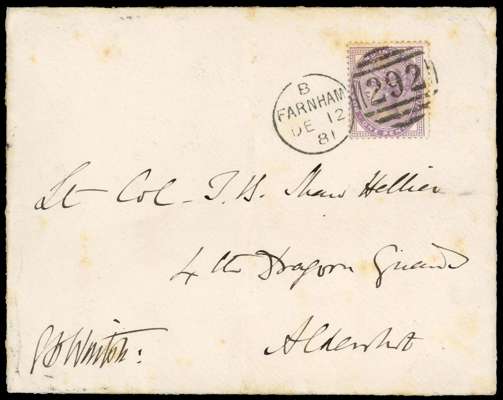 B
FARNHAM
DE 12
81
292
Lt Col. T. B. Shaw Hellier
4th Dragoon Guards
Aldershot